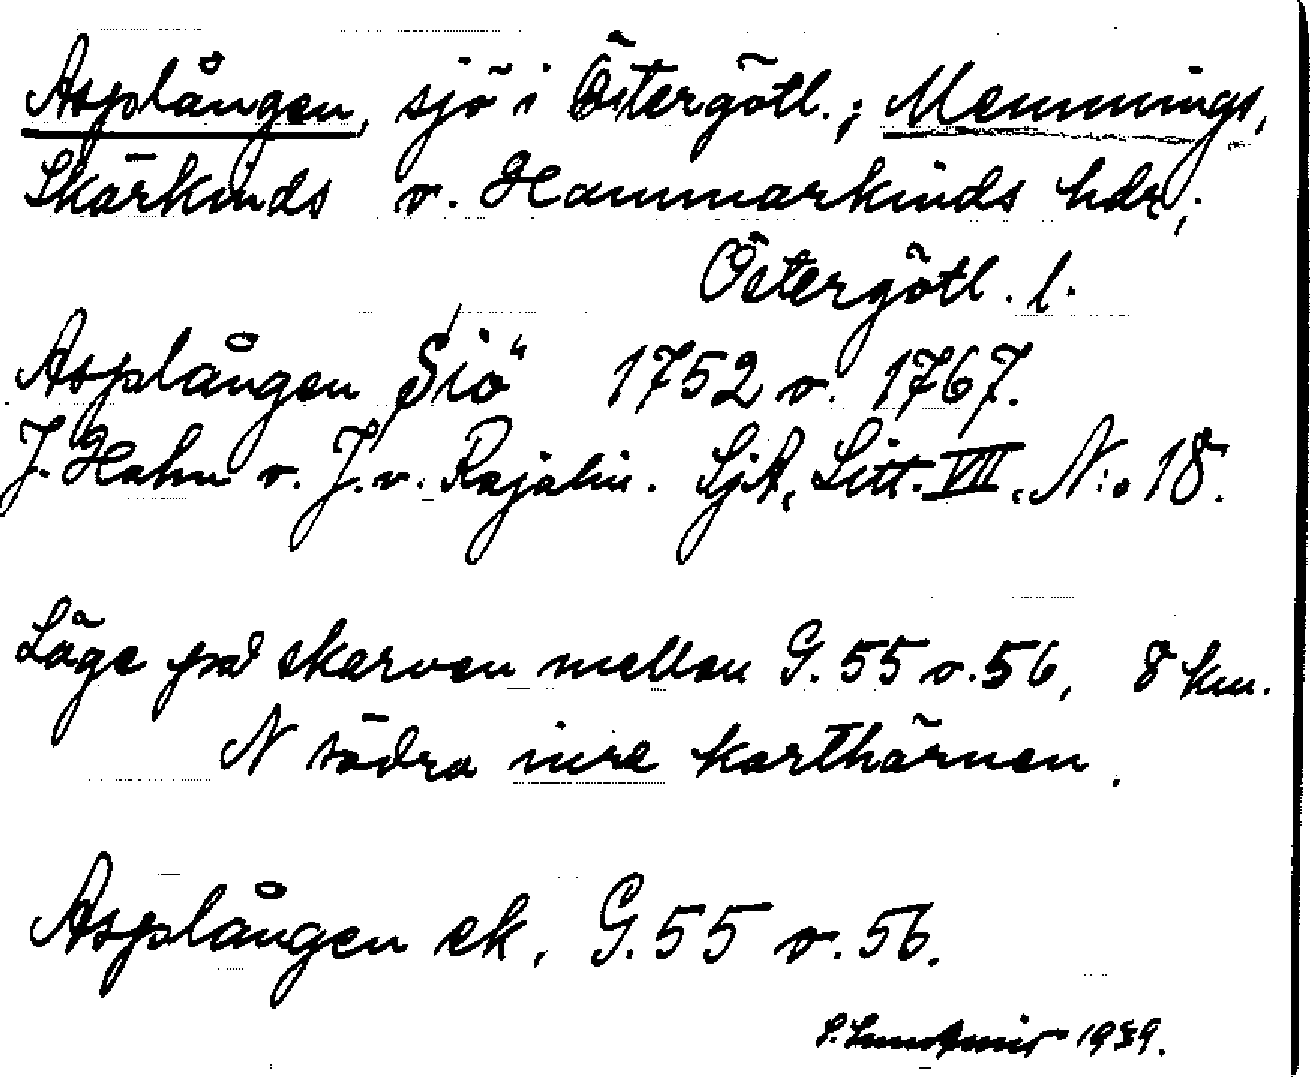 Asplången, sjö i Östergötl.; Memmings,
Skärkinds o. Hammarkinds hdr,;
Östergötl. l.
Asplången Siö 1752 o. 1767.
J. Hahn o. J. v. Rajalin. SjA, Litt. VII. N:o 18.
Läge på skarven mellan G. 55 o. 56, 8 km.
N södra inre karthörnen.
Asplången ek. G. 55 o. 56.
1939.